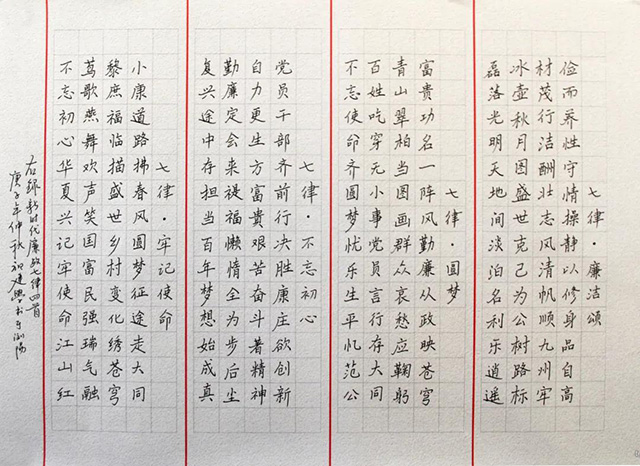 七律·廉洁颂
俭而养性守情操静以修身品自高
材茂行洁酬壮志风清帆顺九州牢
冰壶秋月图盛世克己为公树路标
磊落光明天地间淡泊名利乐逍遥
七律·圆梦
富贵功名一阵风勤廉从政映苍穹
青山翠柏当图画群众哀愁应鞠躬
百姓吃穿无小事党员言行存大同
不忘使命齐圆梦忧乐生平忆范公
七律·不忘初心
党员干部齐前行决胜康庄欲创新
自力更生方富贵艰苦奋斗著精神
勤廉定会来禔福懒惰全为步后尘
复兴途中存担当百年梦想始成真
七律·牢记使命
小康道路拂春风圆梦征途走大同
黎庶福临描盛世乡村变化绣苍穹
莺歌燕舞欢声笑国富民强瑞气融
不忘初心华夏兴记牢使命江山红
右录新时代廉政七律四首
庚子年仲秋建兴书于浏阳